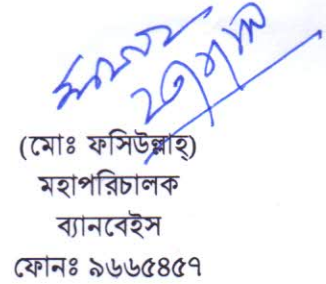 (মোঃ ফসিউল্লাহ্)
মহাপরিচালক
ব্যানবেইস
ফোনঃ ৯৬৬৫৪৫৭